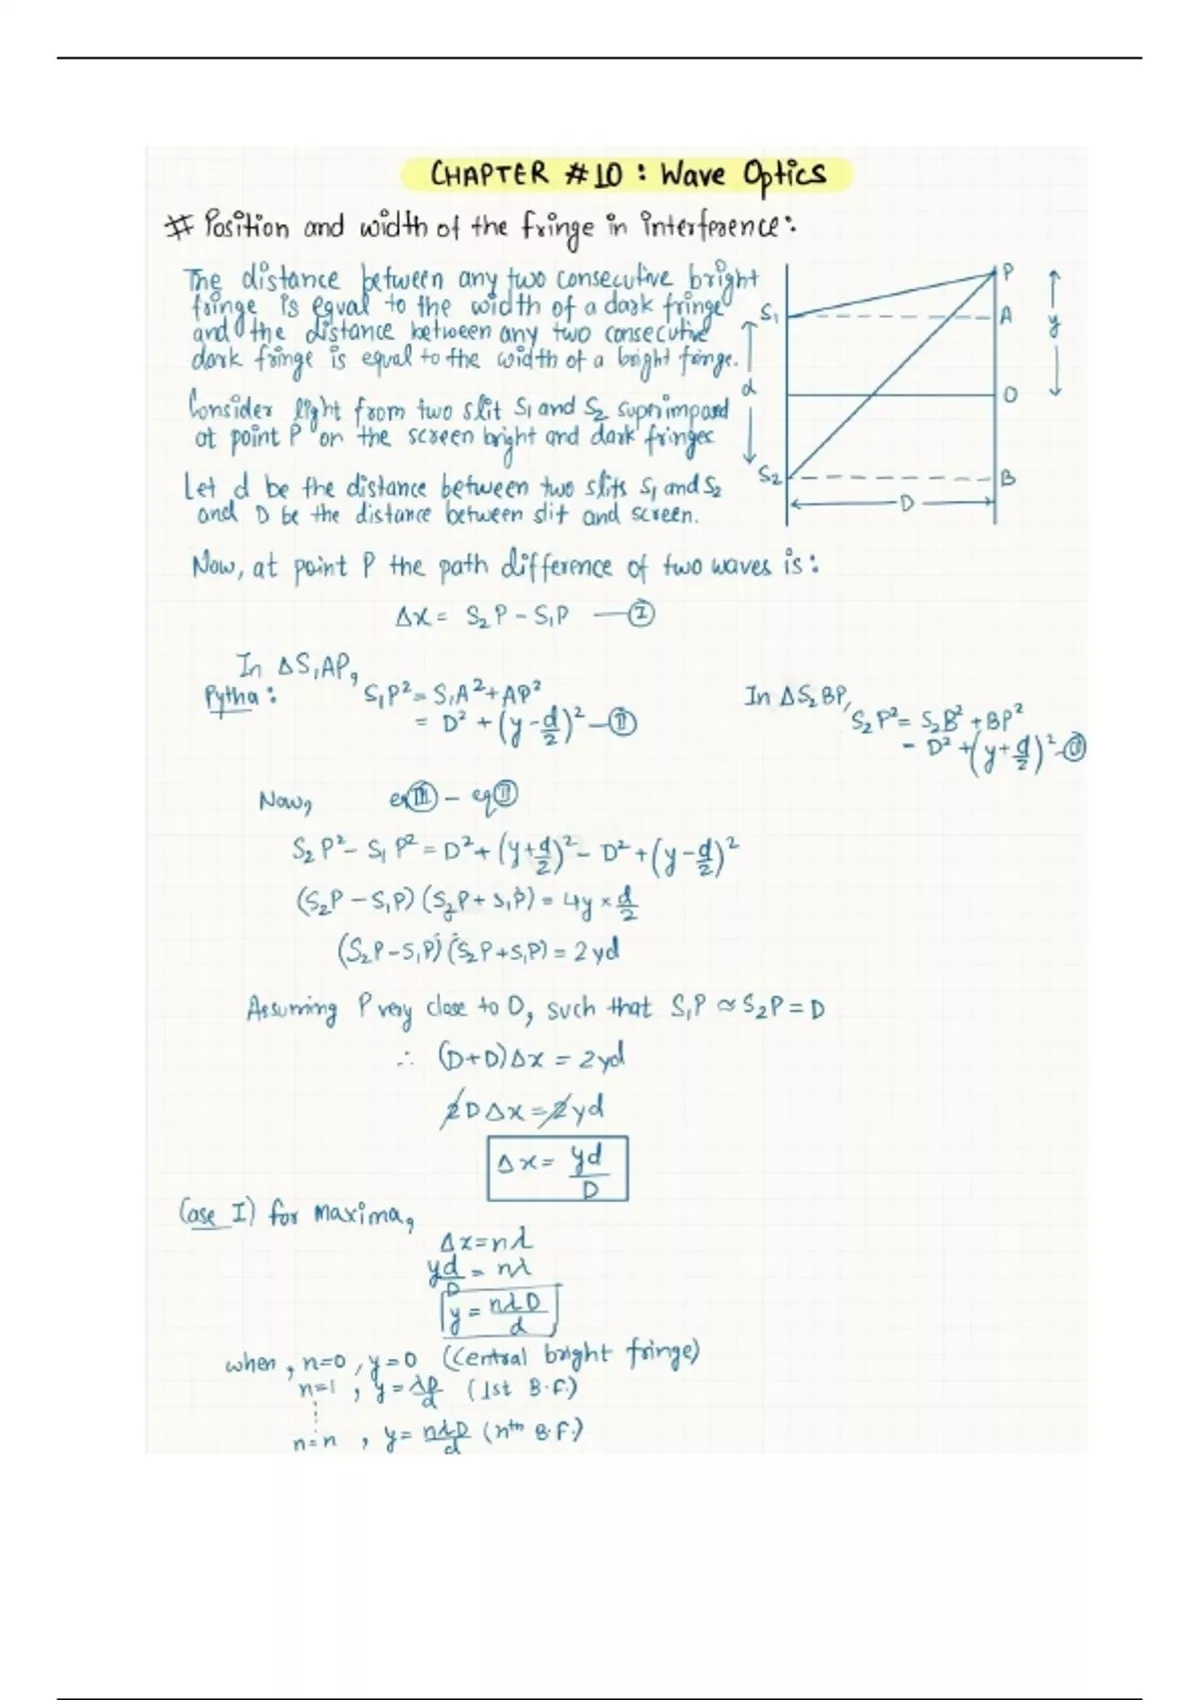 CHAPTER #10 : Wave Optics
# Position and width of the fringe in interference:
The distance between any two consecutive bright
fringe is equal to the width of a dark fringe
and the distance between any two consecutive
dark fringe is equal to the width of a bright fringe.
Consider light from two slit S₁ and S₂ suprimpard
at point P on the screen bright and dark fringes
Let d be the distance between two slits S₁ and S₂
and D be the distance between slit and screen.
P
S₁
A
y
d
O
S₂
B
D
Now, at point P the path difference of two waves is:
Δx = S₂P - S₁P —(I)
In ΔS₁AP,
Pytha: S₁P² = S₁A² + AP²
= D² + (y - d/2)² —(II)
In ΔS₂BP,
S₂P² = S₂B² + BP²
= D² + (y + d/2)² —
Now, eq(III) - eq(II)
S₂P² - S₁P² = D² + (y + d/2)² - D² + (y - d/2)²
(S₂P - S₁P) (S₂P + S₁P) = 4y × d/2
(S₂P - S₁P) (S₂P + S₁P) = 2yd
Assuming P very close to O, such that S₁P ≈ S₂P = D
∴ (D+D)Δx = 2yd
2DΔx = 2yd
Δx = yd/D
Case I) for maxima,
Δx = nλ
yd/D = nλ
y = nλD/d
when, n=0, y=0 (Central bright fringe)
n=1, y = λD/d (1st B.F.)
n=n, y = nλD/d (nth B.F.)